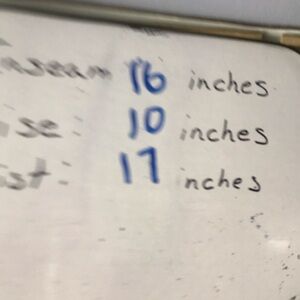 Inseam 16 inches
ise: 10 inches
ist: 17 inches